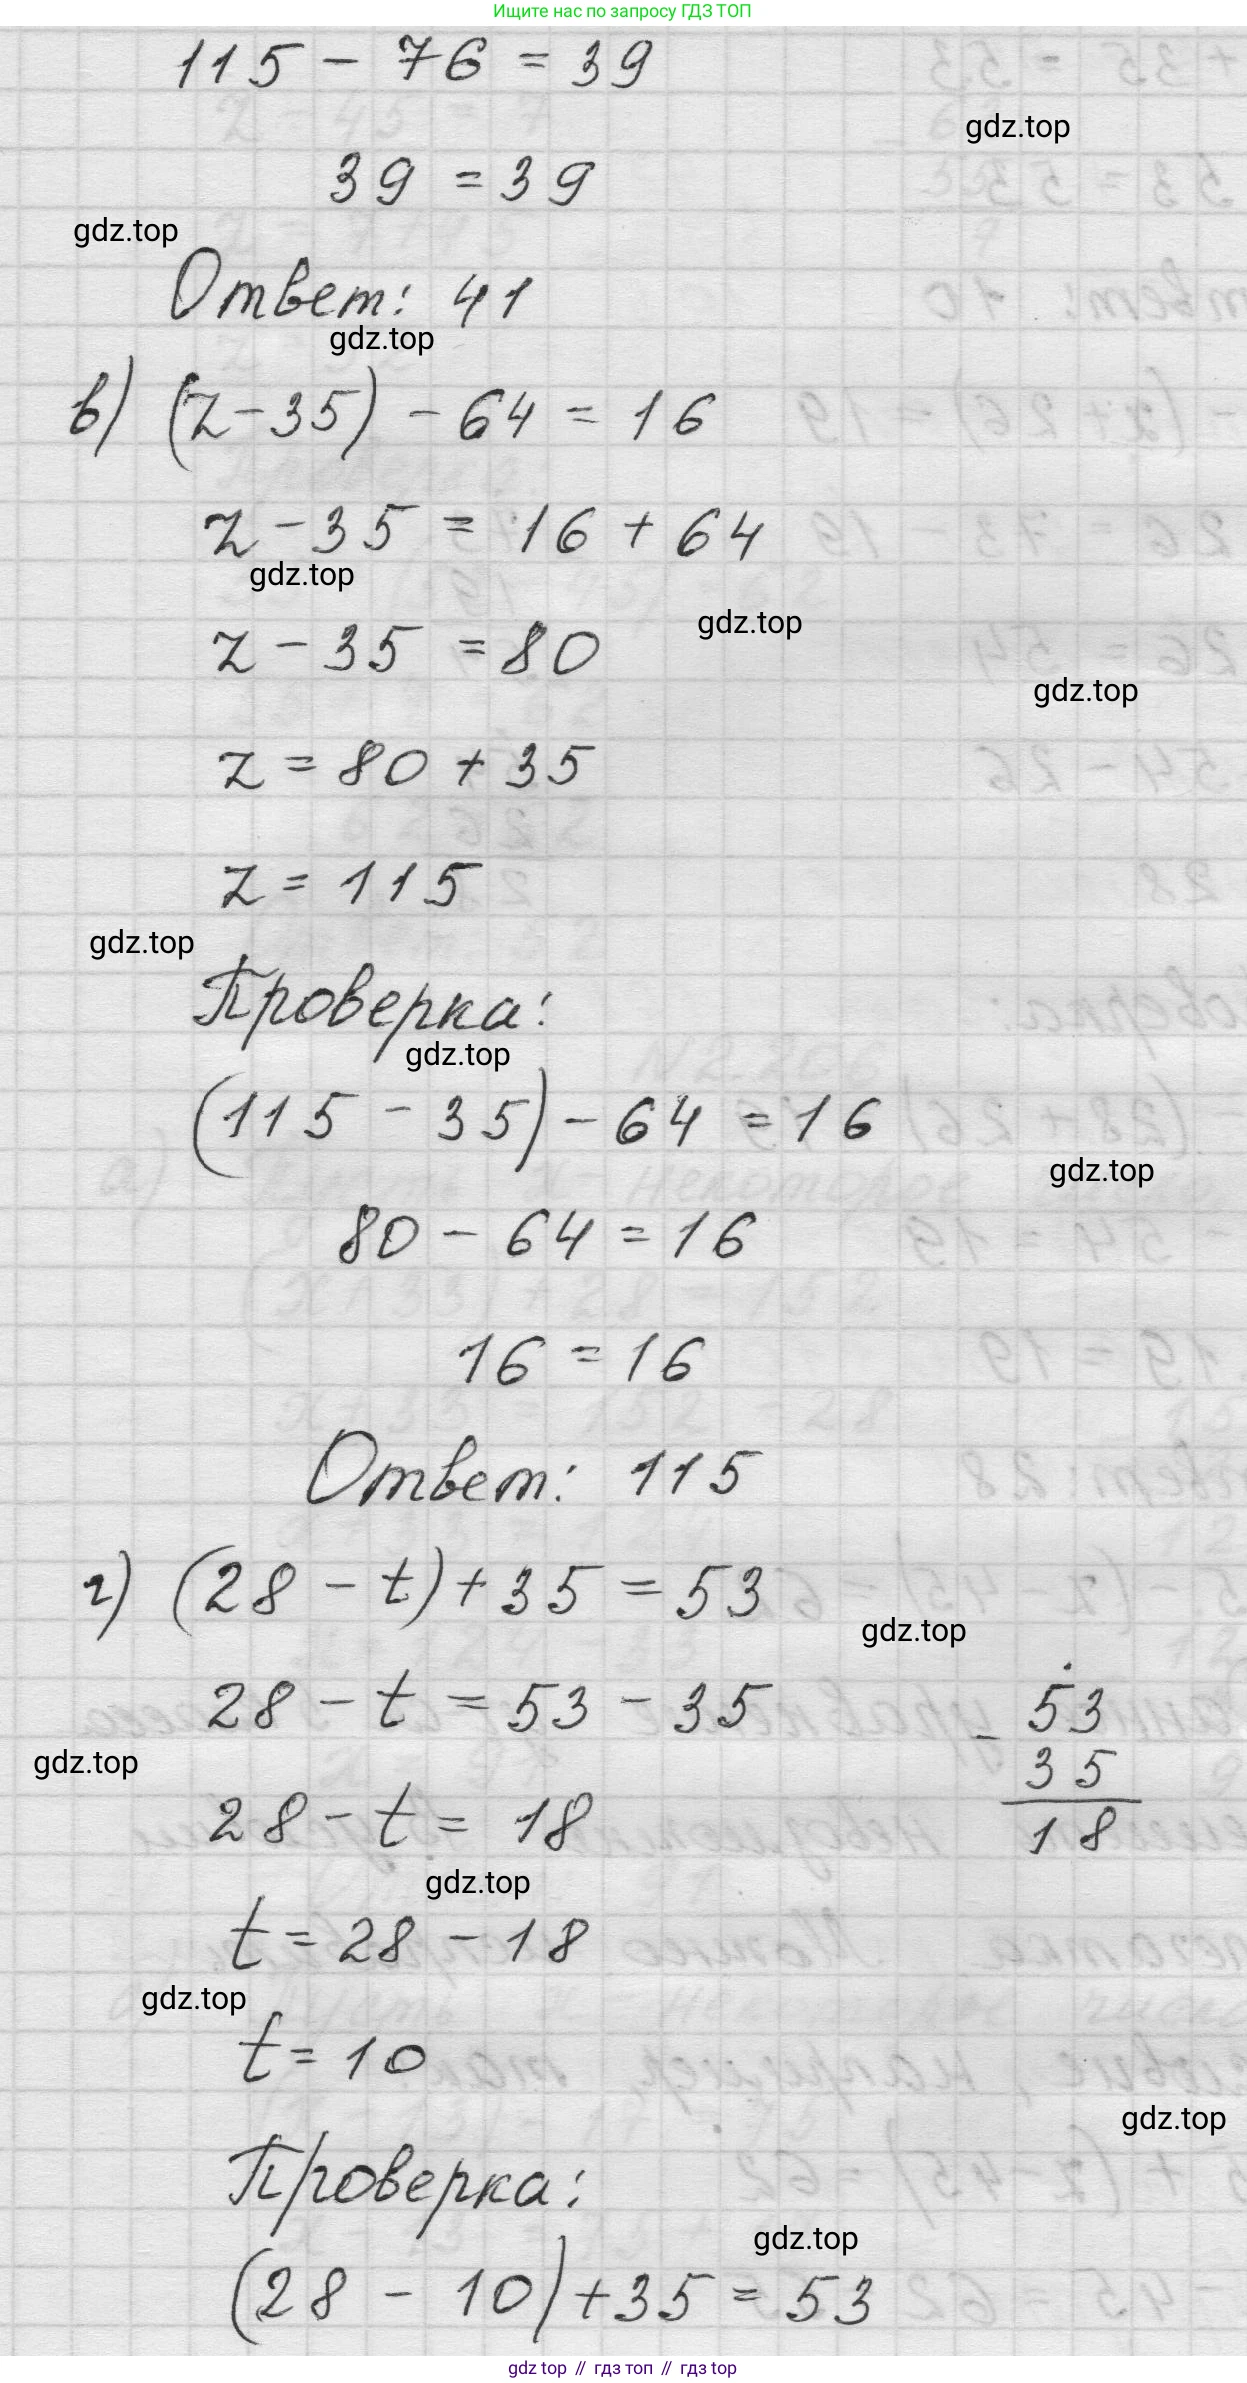 Ищите нас по запросу ГДЗ ТОП
115 - 76 = 39
gdz.top
39 = 39
gdz.top
Ответ: 41
gdz.top
в) (z - 35) - 64 = 16
z - 35 = 16 + 64
gdz.top
gdz.top
z - 35 = 80
gdz.top
z = 80 + 35
z = 115
gdz.top
Проверка:
gdz.top
(115 - 35) - 64 = 16
gdz.top
80 - 64 = 16
16 = 16
Ответ: 115
г) (28 - t) + 35 = 53
gdz.top
28 - t = 53 - 35
53
- 35
18
gdz.top
28 - t = 18
gdz.top
t = 28 - 18
gdz.top
t = 10
gdz.top
Проверка:
gdz.top
(28 - 10) + 35 = 53
gdz top // гдз топ // gdz top